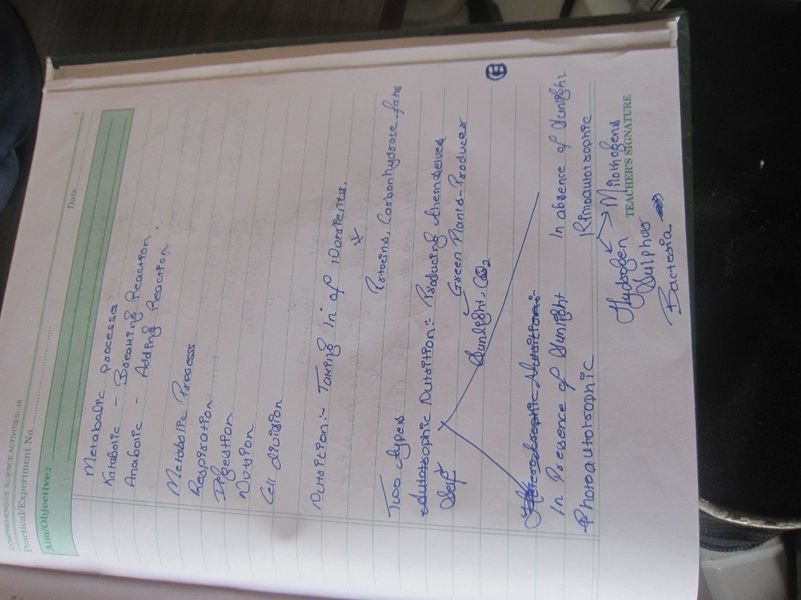 COMPREHENSIVE SCIENCE ACTIVITIES - IX
Practical/Experiment No.
Date
Aim/Objective :
Metabolic process
Katabolic - Breaking Reaction
Anabolic - Adding Reaction.
Metabolic Process
Respiration
Digestion
Nutrion
Cell division
Nutrition:- Taking in of Nutrients.
Protocins, Carbonhydrate, fats
Two types
Autotrophic Nutrition:- Producing themselves
Self
Green Plants - Producer
Sunlight, CO2
Heterotrophic Nutrition:-
In Presence of Sunlight
In absence of Sunlight.
Photoautotrophic
Kimoautotrophic
TEACHER'S SIGNATURE
Hydrogen
Sulphur
Bacteria